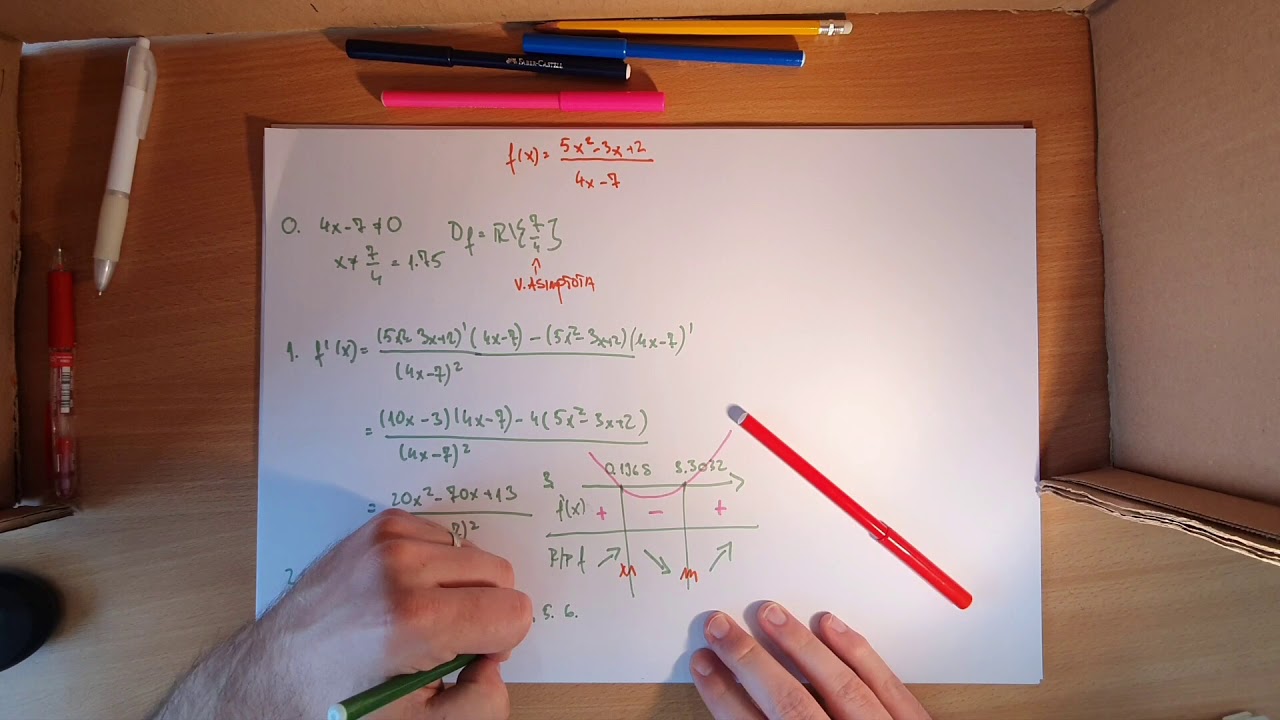 FABER-CASTELL
f(x) = (5x²-3x+2)/(4x-7)
0. 4x-7≠0 Df = R\{7/4}
x≠7/4 = 1.75
↑
V. ASIMPTOTA
1. f'(x) = ((5x²-3x+2)'(4x-7) - (5x²-3x+2)(4x-7)')/(4x-7)²
= ((10x-3)(4x-7) - 4(5x²-3x+2))/(4x-7)²
= 20x²-70x+13
7)²
3. 0.1968 3.3032
f'(x) + - +
R/P f ↗ M ↘ m ↗
2.
5. 6.